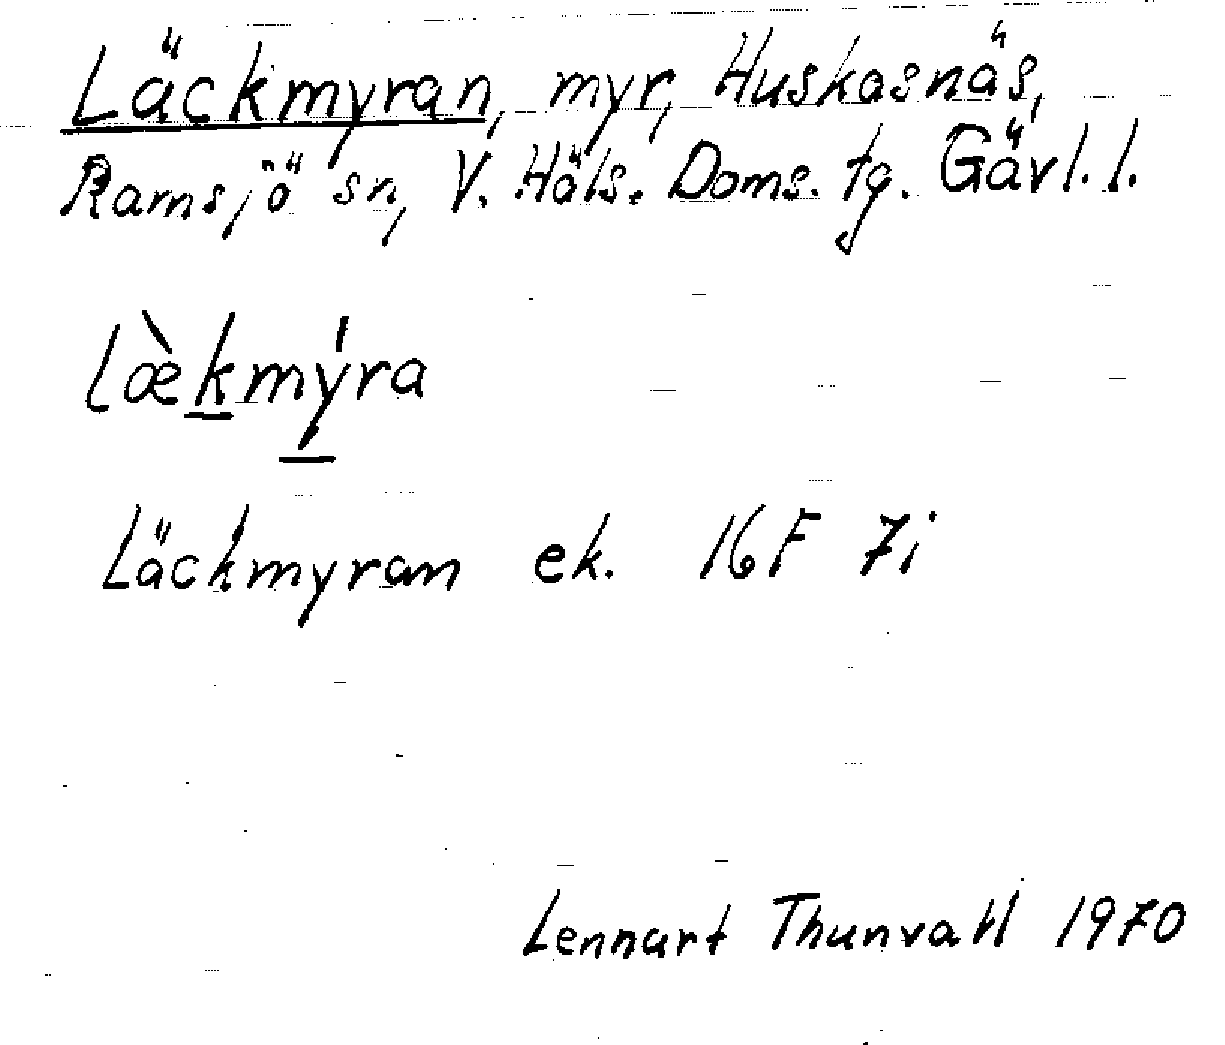 Läckmyran, myr, Huskasnäs,
Ramsjö sn, V. Häls. Doms. tg. Gävl. l.
læ̀kmy̍ra
Läckmyran ek. 16F 7i
Lennart Thunvall 1970